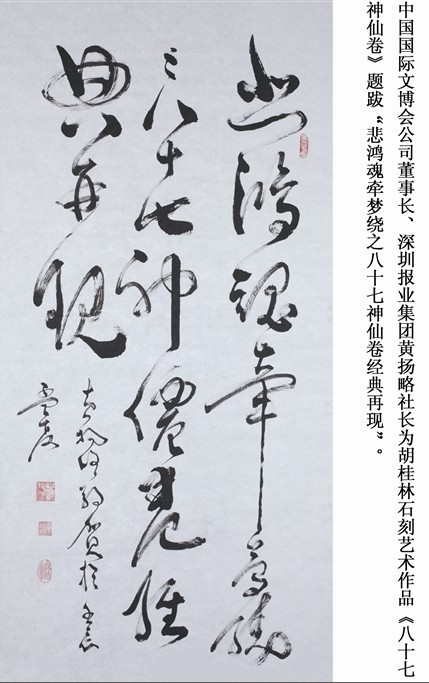 中国国际文博会公司董事长、深圳报业集团黄扬略社长为胡桂林石刻艺术作品《八十七
神仙卷》题跋“悲鸿魂牵梦绕之八十七神仙卷经典再现”。
悲鴻魂牵夢繞
之八十七神僊卷經
典再現